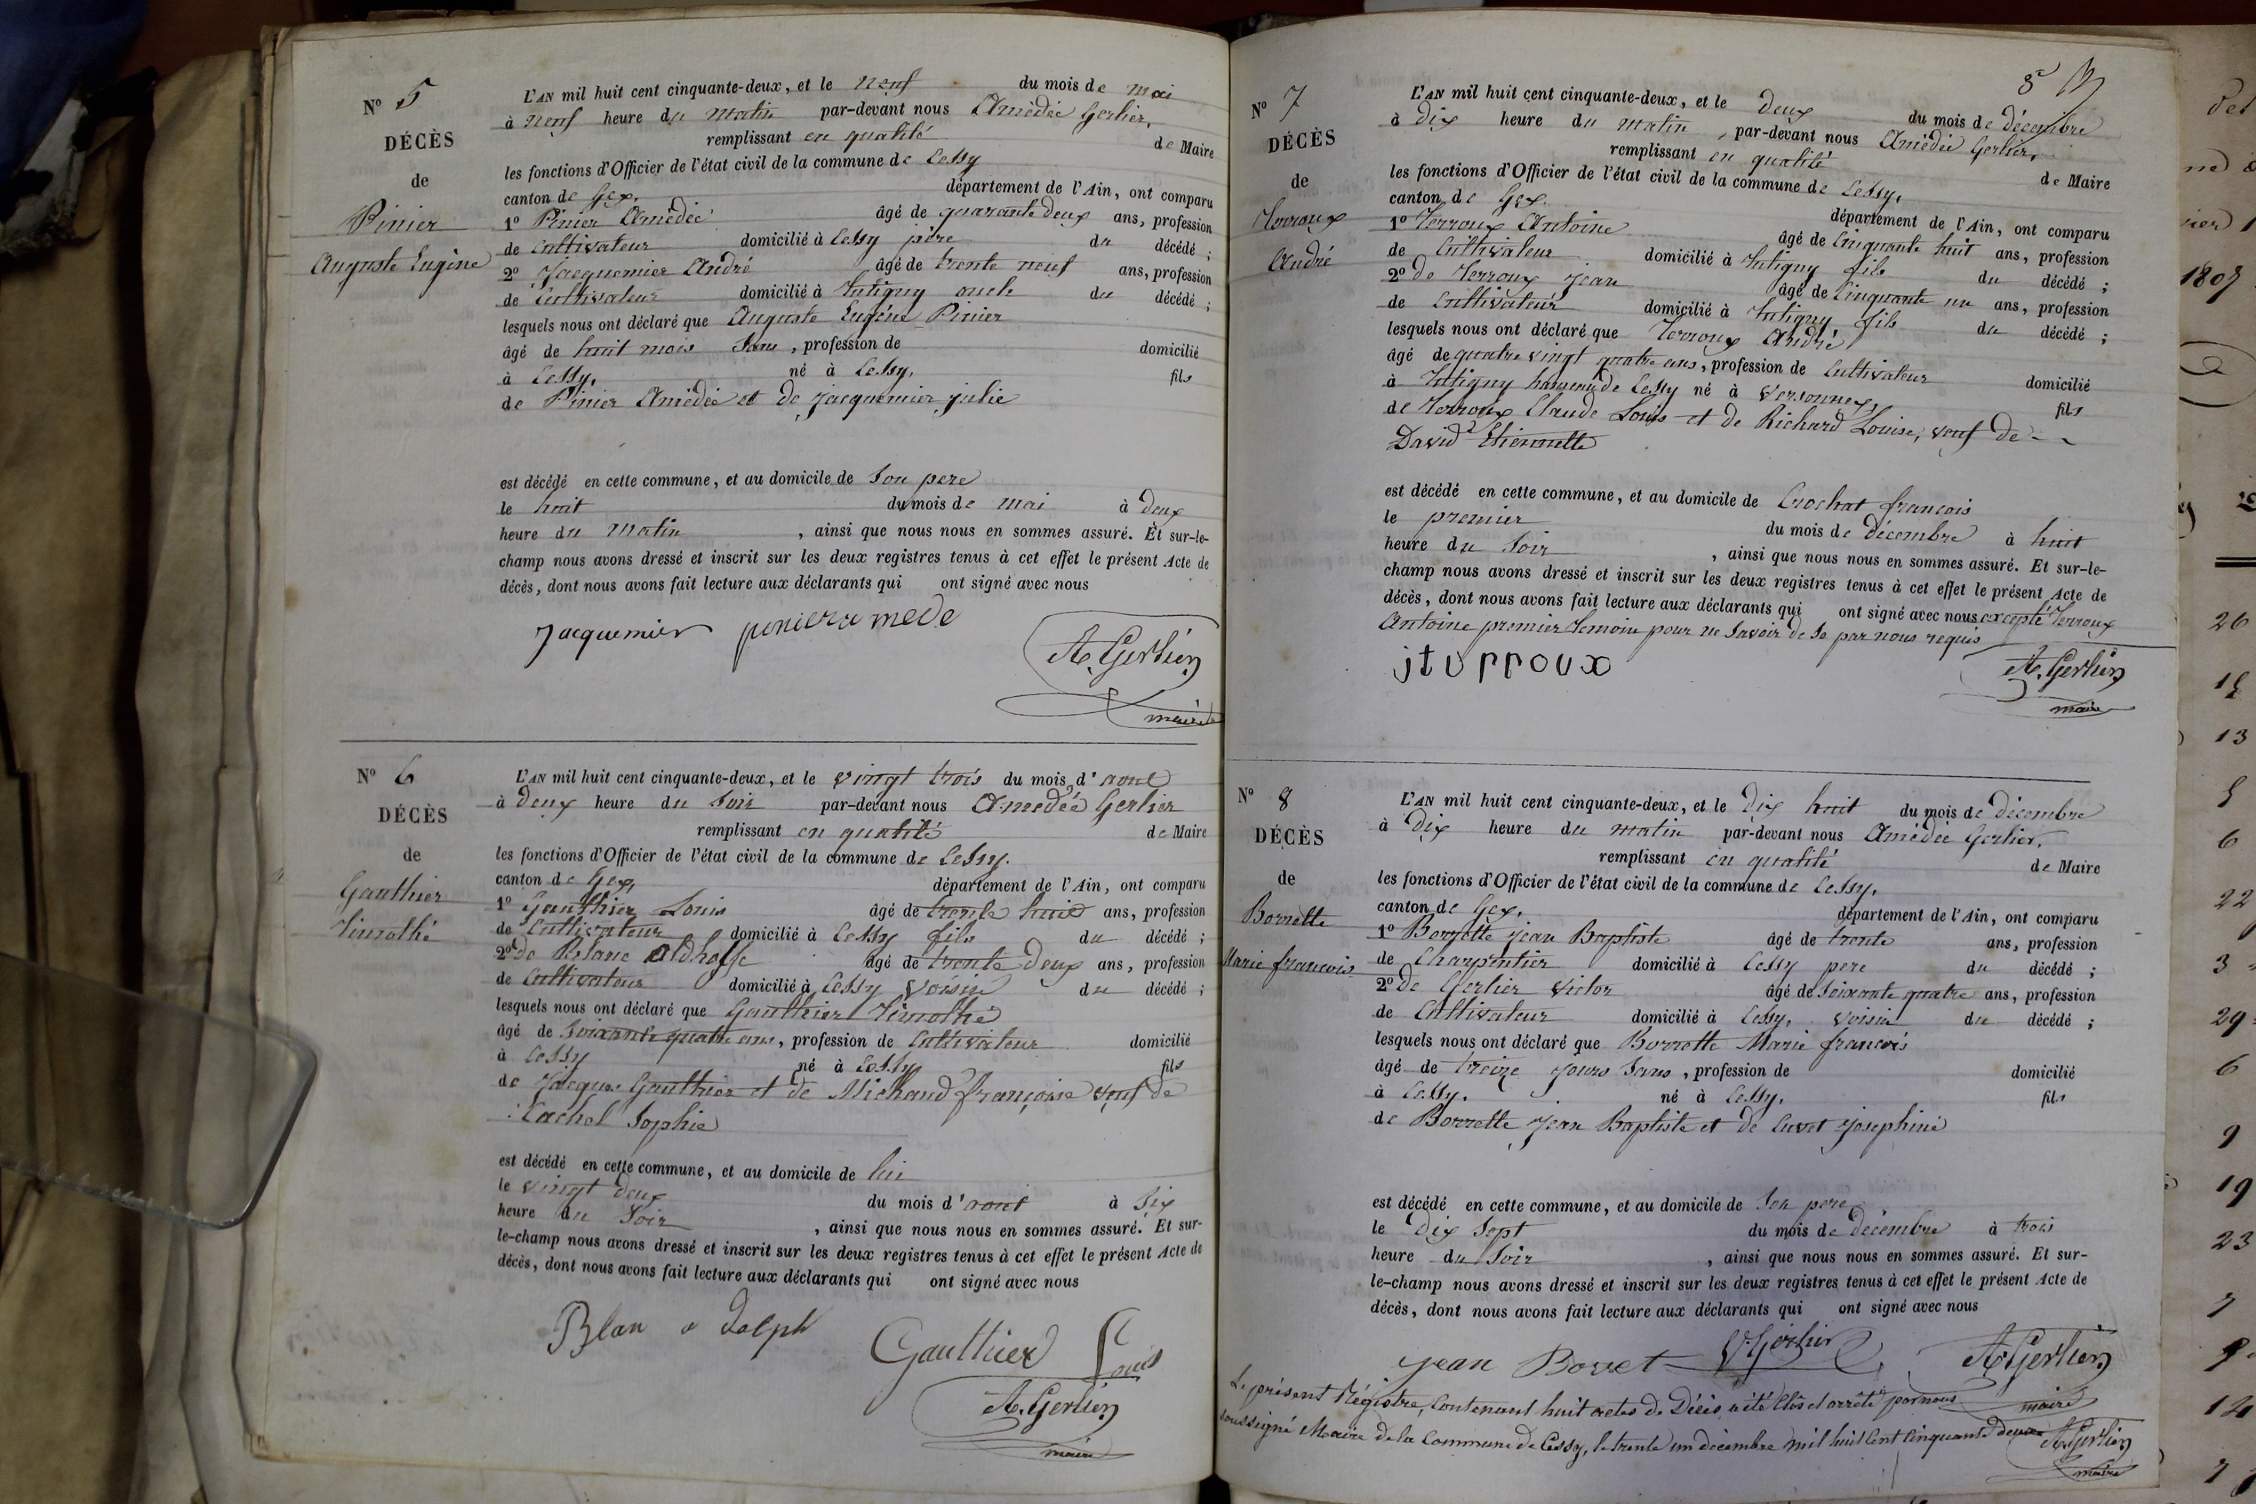 N° 5
DÉCÈS
de
Pinier
Auguste Eugène
L'AN mil huit cent cinquante-deux, et le neuf du mois de mai
à neuf heure du matin par-devant nous Amédée Gerlier,
remplissant en qualité de Maire
les fonctions d'Officier de l'état civil de la commune de Cessy
canton de Gex, département de l'Ain, ont comparu
1° Pinier Amédée âgé de quarante deux ans, profession
de Cultivateur domicilié à Cessy père du décédé ;
2° Jacquemier André âgé de trente neuf ans, profession
de Cultivateur domicilié à Tutigny oncle du décédé ;
lesquels nous ont déclaré que Auguste Eugène Pinier
âgé de huit mois sans, profession de domicilié
à Cessy, né à Cessy, fils
de Pinier Amédée et de Jacquemier julie
est décédé en cette commune, et au domicile de son pere
le huit du mois de mai à deux
heure du matin, ainsi que nous nous en sommes assuré. Et sur-le-
champ nous avons dressé et inscrit sur les deux registres tenus à cet effet le présent Acte de
décès, dont nous avons fait lecture aux déclarants qui ont signé avec nous
Jacquemier piniera mede
A. Gerlier
maire
N° 6
DÉCÈS
de
Gauthier
Timothé
L'AN mil huit cent cinquante-deux, et le vingt trois du mois d'aout
à deux heure du soir par-devant nous Amedée Gerlier
remplissant en qualité de Maire
les fonctions d'Officier de l'état civil de la commune de Cessy.
canton de Gex, département de l'Ain, ont comparu
1° Gauthier Louis âgé de trente huit ans, profession
de Cultivateur domicilié à Cessy fils du décédé ;
2° de Blanc Aldholfe âgé de trente deux ans, profession
de Cultivateur domicilié à Cessy voisin du décédé ;
lesquels nous ont déclaré que Gauthier Timothé
âgé de soixante quatre ans, profession de Cultivateur domicilié
à Cessy né à Cessy fils
de Jacques Gauthier et de Michaud françoise veuf de
Lachel Sophie
est décédé en cette commune, et au domicile de lui
le vingt deux du mois d'aout à six
heure du soir, ainsi que nous nous en sommes assuré. Et sur-
le-champ nous avons dressé et inscrit sur les deux registres tenus à cet effet le présent Acte de
décès, dont nous avons fait lecture aux déclarants qui ont signé avec nous
Blan a dolph Gauthier Louis
A. Gerlier
maire
N° 7
DÉCÈS
de
Terroux
André
L'AN mil huit cent cinquante-deux, et le deux du mois de décembre
à dix heure du matin, par-devant nous Amédée Gerlier,
remplissant en qualité de Maire
les fonctions d'Officier de l'état civil de la commune de Cessy,
canton de Gex. département de l'Ain, ont comparu
1° Terroux Antoine âgé de Cinquante huit ans, profession
de Cultivateur domicilié à Tutigny fils du décédé ;
2° de Terroux jean âgé de Cinquante un ans, profession
de Cultivateur domicilié à Tutigny fils du décédé ;
lesquels nous ont déclaré que Terroux André
âgé de quatre vingt quatre ans, profession de Cultivateur domicilié
à Tutigny hameau de Cessy né à Versonnex, fils
de Terroux Claude Louis et de Richard Louise, veuf de
David Etiennette
est décédé en cette commune, et au domicile de Crochat françois
le premier du mois de décembre à huit
heure du soir, ainsi que nous nous en sommes assuré. Et sur-le-
champ nous avons dressé et inscrit sur les deux registres tenus à cet effet le présent Acte de
décès, dont nous avons fait lecture aux déclarants qui ont signé avec nous excepté Terroux
Antoine premier temoin pour ne savoir de se par nous requis
jturroux
A. Gerlier
maire
N° 8
DÉCÈS
de
Borrette
Marie francois
L'AN mil huit cent cinquante-deux, et le dix huit du mois de décembre
à dix heure du matin par-devant nous Amédée Gerlier,
remplissant en qualité de Maire
les fonctions d'Officier de l'état civil de la commune de Cessy,
canton de Gex, département de l'Ain, ont comparu
1° Borrette jean Baptiste âgé de trente ans, profession
de Charpentier domicilié à Cessy pere du décédé ;
2° de Gerlier Victor âgé de soixante quatre ans, profession
de Cultivateur domicilié à Cessy, voisin du décédé ;
lesquels nous ont déclaré que Borrette Marie francois
âgé de treize jours sans, profession de domicilié
à Cessy. né à Cessy. fils
de Borrette jean Baptiste et de Cuvet josephine
est décédé en cette commune, et au domicile de son pere
le dix sept du mois de décembre à trois
heure du soir, ainsi que nous nous en sommes assuré. Et sur-
le-champ nous avons dressé et inscrit sur les deux registres tenus à cet effet le présent Acte de
décès, dont nous avons fait lecture aux déclarants qui ont signé avec nous
jean Borret V. Gerlier A. Gerlier
maire
Le présent Régistre, contenant huit actes de Décès a été Clos et arrêté par nous
soussigné Maire de la Commune de Cessy, le trente un décembre mil huit Cent Cinquante deux A. Gerlier
maire
1807
26
13
6
22
3
29
6
9
19
23
7